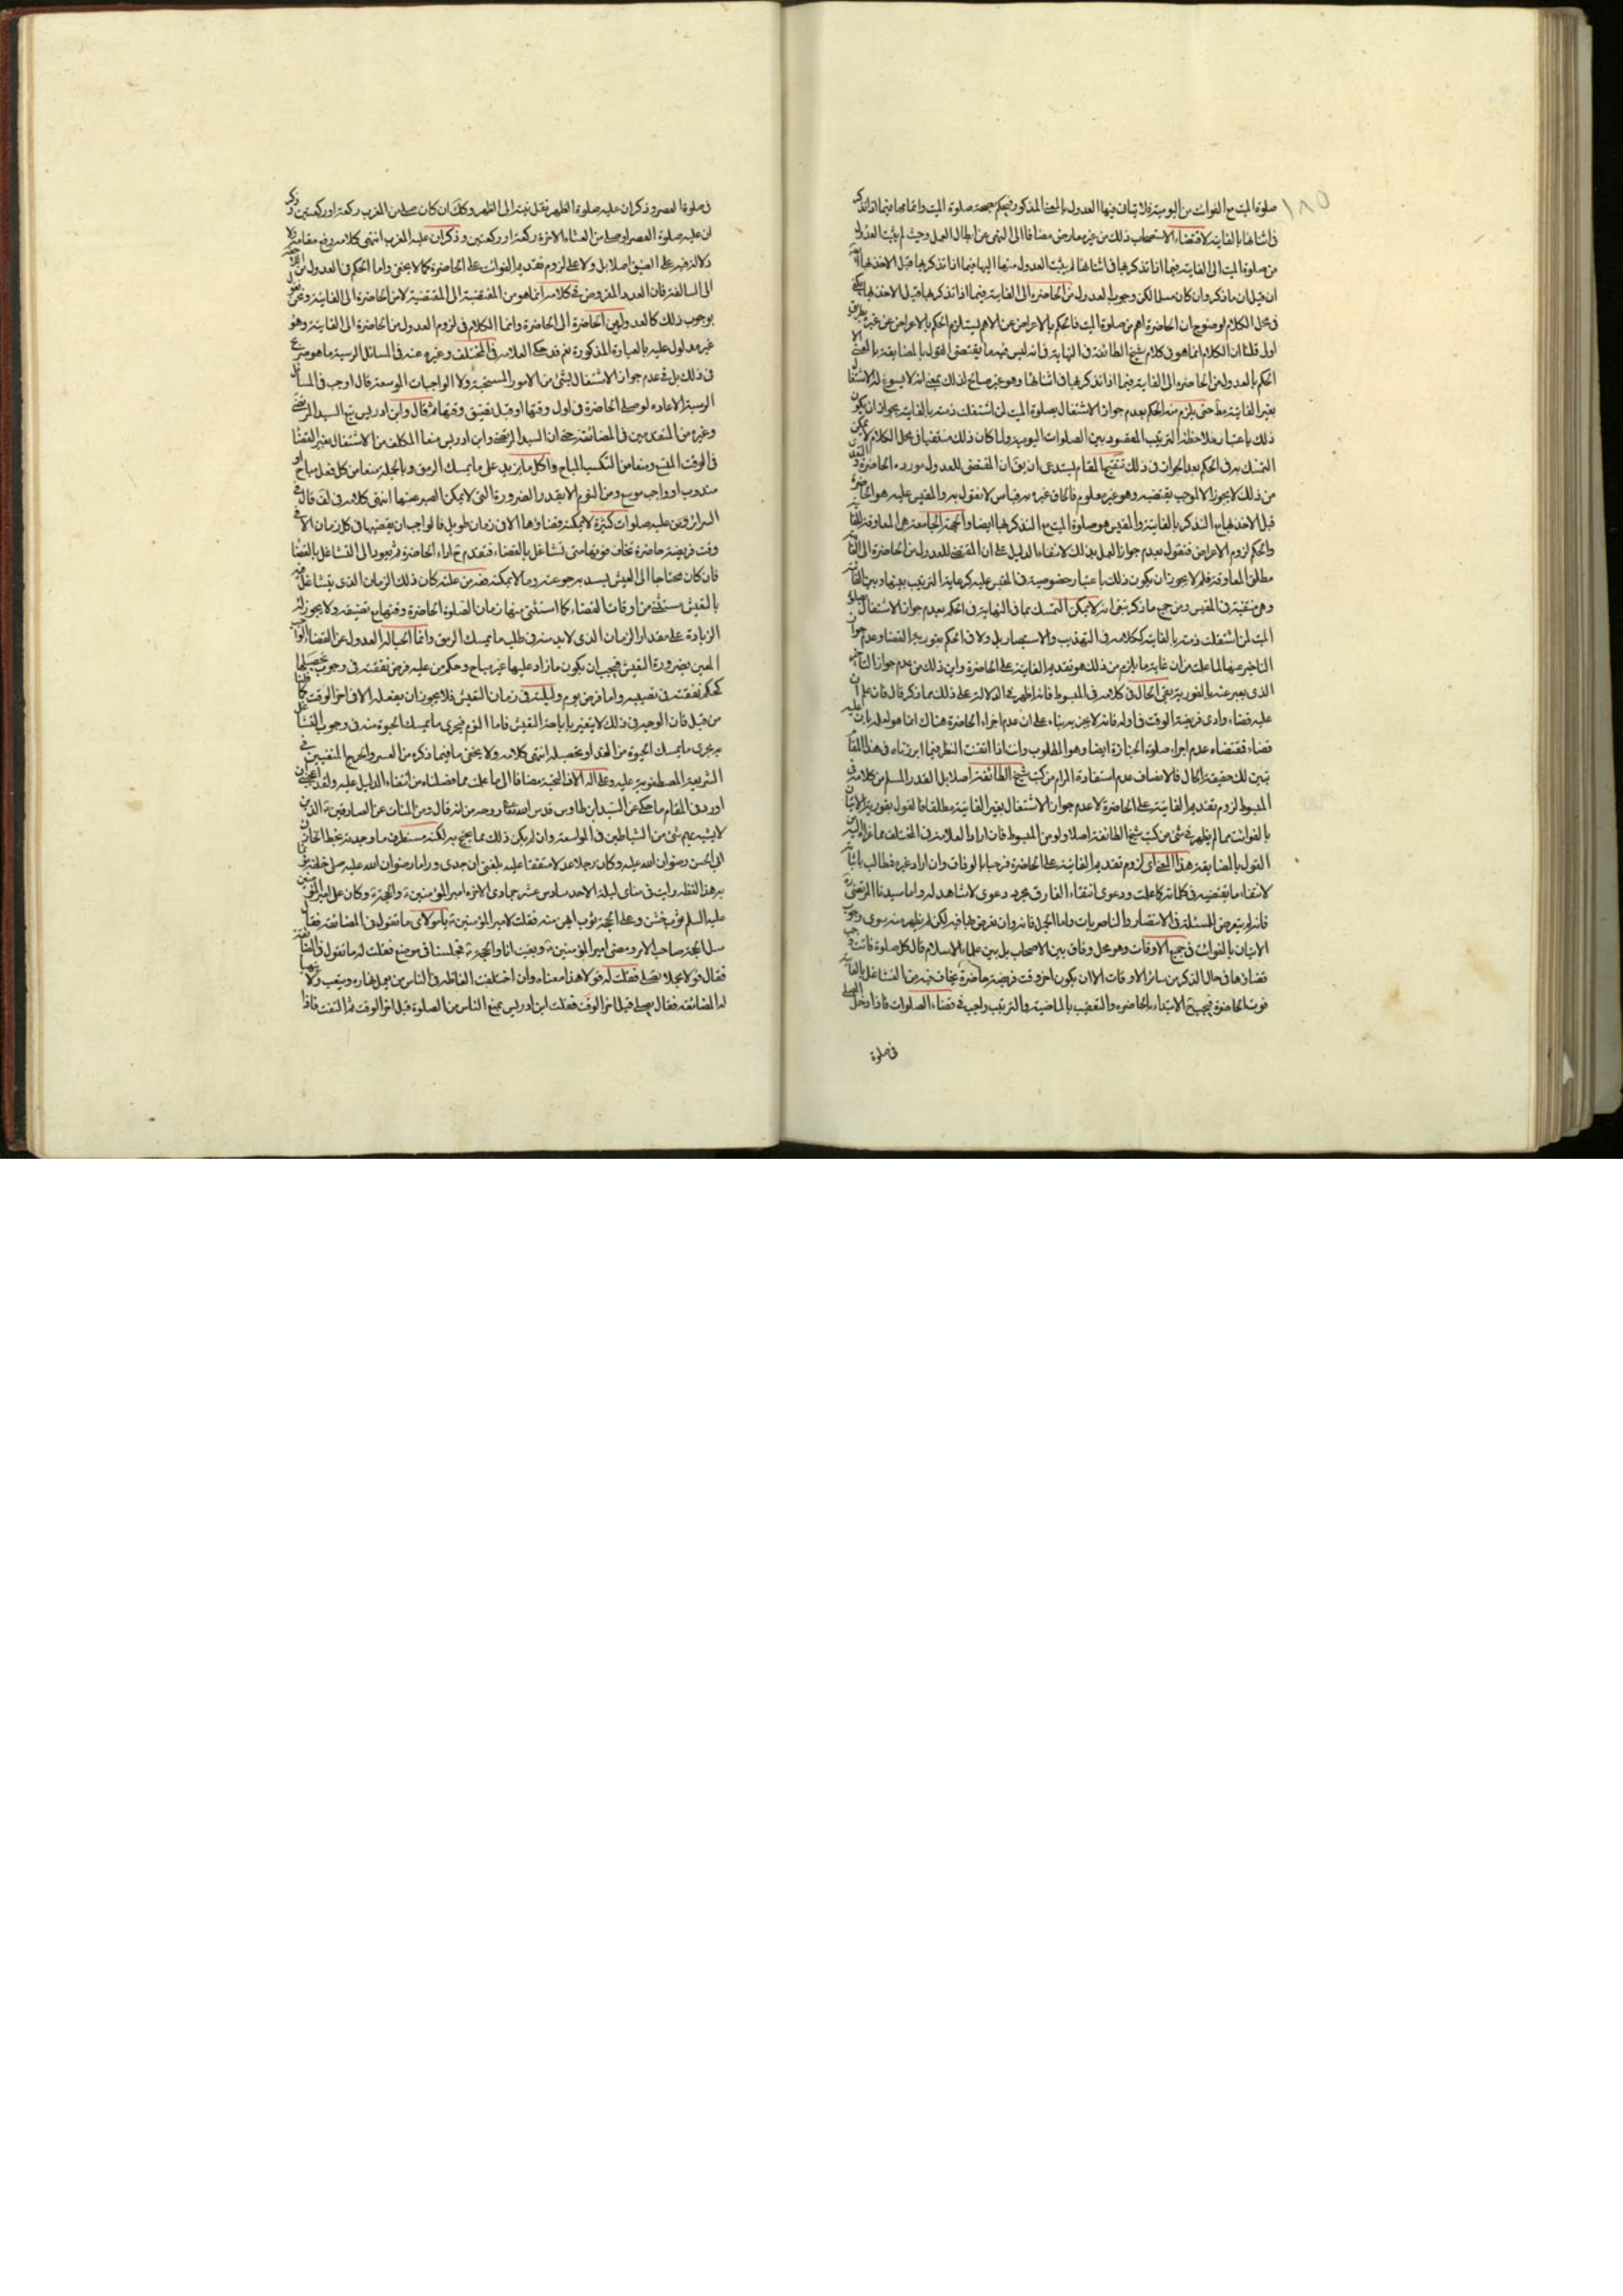 صلوة الميت مع الفوائت من اليومية فلا يتأتى فيها العدول بالمعنى المذكور فيحكم بصحة صلوة الميت واتمامها فيما اذا تذكر
فى اثنائها بالفايتة لاقتضاء الاستصحاب ذلك من غير معارض مضافا الى النهى عن ابطال العمل وحيث لم يثبت العدول
من صلوة الميت الى الفايتة فيما اذا تذكرها فى اثنائها لم يثبت العدول منها اليها فيما اذا تذكرها قبل الاخذ بها
ان قيل ان ما ذكر وان كان مسلما لكن وجوب العدول من الحاضرة الى الفايتة فيما اذا تذكرها قبل الاخذ بها
فى محل الكلام لوضوح ان الحاضرة اهم من صلوة الميت فالحكم بالاعراض عن الاهم يستلزم الحكم بالاعراض عن غيره بطريق
اولى قلنا ان الكلام انما هو فى كلام شيخ الطائفة فى النهاية فانه ليس فيه ما يقتضى القول بالمضايقة بالمعنى
الحكم بالعدول من الحاضرة الى الفايتة فيما اذا تذكرها فى اثنائها وهو غير صالح لذلك بمعنى انه لا يسوغ له الاشتغال
بغير الفايتة مط حتى يلزم منه الحكم بعدم جواز الاشتغال بصلوة الميت لمن اشتغلت ذمته بالفايتة بجواز ان يكون
ذلك باعتبار ملاحظة الترتيب المقصود بين الصلوات اليومية ولما كان ذلك منتفيا فى محل الكلام لا يمكن
التمسك به فى الحكم بعد الجواز فى ذلك تنقيح المقام يستدعى ان يق ان المقتضى للعدول مورده الحاضرة
من ذلك لا يجوز الا لموجب يقتضيه وهو غير معلوم فالحاق غيره به قياس لا نقول به والمقيس عليه هو الحاضرة
قبل الاخذ بها مع التذكر بالفايتة والمقيس هو صلوة الميت مع التذكر بها ايضا والجهة الجامعة هى المعاوقة
والحكم لزوم الاعراض فنقول بعدم جواز العمل بذلك لانتفاء الدليل على ان المقتضى للعدول من الحاضرة الى الفايتة
مطلق المعاوقة فلم لا يجوز ان يكون ذلك باعتبار خصوصية فى المقيس عليه كرعاية الترتيب بينها وبين الفايتة
وهى منتفية فى المقيس ومن جميع ما ذكر تبين انه لا يمكن التمسك بما فى النهاية فى الحكم بعدم جواز الاشتغال بصلوة
الميت لمن اشتغلت ذمته بالفايتة ككلامه فى التهذيب والاستبصار بل ولا فى الحكم بفورية القضاء وعدم جواز
التاخير عنها لما علمت من ان غاية ما يلزم من ذلك هو تقديم الفايتة على الحاضرة واين ذلك من عدم جواز التاخير
الذى يعبر عنه بالفورية بقى الحال فى كلامه فى المبسوط فانه اظهر فى الدلالة على ذلك مما ذكر قال فان علم ان
عليه قضاء وادى فريضة الوقت فى اوله فانه لا يجزيه بناء على ان عدم اجزاء الحاضرة هناك انما هو لعدم
قضاء فمقتضاه عدم اجزاء صلوة الجنازة ايضا وهو المطلوب وانت اذا اتقنت النظر فيما ابرزناه فى هذا المقام
تبين لك حقيقة الحال فالانصاف عدم استفادة المرام من كتب شيخ الطائفة اصلا بل القدر المسلم من كلامه فى
المبسوط لزوم تقديم الفايتة على الحاضرة لا عدم جواز الاشتغال بغير الفايتة مطلقا فالقول بفورية الاتيان
بالفوائت مما لم يظهر فى شئ من كتب شيخ الطائفة اصلا ولو من المبسوط فان اراد العلامة فى المختلف مما عزاه اليه من
القول بالمضايقة هذا المعنى اى لزوم تقديم الفايتة على الحاضرة فمرحبا بالوفاق وان اراد غيره فطالب باثباته
لانتفاء ما يقتضيه فى كلماته كما علمت ودعوى انتفاء الفارق مجرد دعوى لا شاهد له واما سيدنا المرتضى
فانه لم يتعرض للمسئلة فى الانتصار والناصريات واما الجمل فانه وان تعرض لها فيه لكن لم يظهر منه سوى وجوب
الاتيان بالفوائت فى جميع الاوقات وهو محل وفاق بين الاصحاب بل بين علماء الاسلام قال كل صلوة فاتت وجب
قضاؤها فى حال الذكر من سائر الاوقات الا ان يكون اخر وقت فريضة حاضرة يخاف فيه من التشاغل بالفايتة
فوت الحاضرة فيجب ح الابتداء بالحاضرة والتعقيب بالماضية والترتيب واجب فى قضاء الصلوات فاذا دخل المصلى
فى صلوة
فى صلوة العصر وذكر ان عليه صلوة الظهر نقل نيته الى الظهر وكذلك ان كان صلى من المغرب ركعة او ركعتين وذكر
ان عليه صلوة العصر او صلى من العشاء الاخرة ركعة او ركعتين وذكر ان عليه المغرب انتهى كلامه رفع مقامه ولا
دلالة فيه على الضيق اصلا بل ولا على لزوم تقديم الفوائت على الحاضرة كما لا يخفى واما الحكم فى العدول من
الى السالفة فان العدول المفروض فى كلامه انما هو من المقضية الى المقضية لا من الحاضرة الى الفايتة ونحن نقول
بوجوب ذلك كالعدول من الحاضرة الى الحاضرة وانما الكلام فى لزوم العدول من الحاضرة الى الفايتة وهو
غير مدلول عليه بالعبارة المذكورة نعم قد حكى العلامة فى المختلف وغيره عنه فى المسائل الرسية ما هو صريح
فى ذلك بل فى عدم جواز الاشتغال بشئ من الامور المستحبة ولا الواجبات الموسعة قال اوجب فى المسائل
الرسية الاعادة لو صلى الحاضرة فى اول وقتها او قبل تضيق وقتها ثم قال وابن ادريس تبع السيد المرتضى
وغيره من المتقدمين فى المضايقة حتى ان السيد المرتضى وابن ادريس منعا المكلف من الاشتغال بغير القضاء
فى الوقت المتسع ومنعا من التكسب المباح واكل ما يزيد على ما يمسك الرمق وبالجملة منعا من كل فعل مباح او
مندوب او واجب موسع ومن النوم الا بقدر الضرورة التى لا يمكن الصبر عنها انتهى كلامه فى لف قال فى
السرائر ومن عليه صلوات كثيرة لا يمكنه قضاؤها الا فى زمان طويل فالواجب ان يقضيها فى كل زمان الا فى
وقت فريضة حاضرة تخاف فوتها متى تشاغل بالقضاء فتقدم ح اداء الحاضرة ثم يعود الى التشاغل بالقضاء
فان كان محتاجا الى تعيش يسد به جوعته وما لا يمكنه ضره من خلته كان ذلك الزمان الذى يتشاغل فيه
بالتعيش مستثنى من اوقات القضاء كما استثنى منها زمان الصلوة الحاضرة وقتها مع تضيقه ولا يجوز له
الزيادة على مقدار الزمان الذى لا بد منه فى طلب ما يمسك الرمق وانما ابحنا له العدول عن القضاء الواجب
المعين لضرورة التعيش فيجب ان يكون ما زاد عليها غير مباح وحكم من عليه فرض نفقته فى وجوب تحصيلها
كحكم نفقته فى نفسه واما فرض يوم وليلته فى زمان التعيش فلا يجوز ان يفعله الا فى اخر الوقت كما قلنا
من قبل فان الوجه فى ذلك لا يتغير باباحة التعيش فاما النوم فيجرى ما يمسك الحيوة منه فى وجوب التشاغل
به مجرى ما يمسك الحيوة من الغذاء وتحصيله انتهى كلامه ولا يخفى ما فيما ذكره من العسر والحرج المنفيين فى
الشريعة المصطفوية عليه وعلى اله الاف التحية مضافا الى ما علمت مما فصلناه من انتفاء الدليل عليه ولقد اعجبنى ان
اورد فى المقام ما حكى عن السيد ابن طاوس قدس الله تعالى روحه من انه قال ومن المنامات عن الصادقين الذين
لا يتشبه بهم شئ من الشياطين فى المواسعة وان لم يكن ذلك مما يحتج به لكنه مستطرف ما وجدته بخط الخازن
ابى الحسن رضوان الله عليه وكان رجلا عدلا متفقا عليه بلغنى ان جدى وراما رضوان الله عليه صلى خلفه
بهذا لفظه رايت فى منامى ليلة الاحد سادس عشر جمادى الاخرة امير المؤمنين والحجة وكان على امير المؤمنين
عليه السلم ثوب خشن وعلى الحجة ثوب الين منه فقلت لامير المؤمنين يا مولاى ما تقول فى المضايقة فقال
سل الحجة صاحب الامر ومضى امير المؤمنين وبقيت انا والحجة فجلسنا فى موضع فقلت له ما تقول فى المضايقة
فقال قولا مجملا تصلى فقلت له قولا هذا معناه وان اختلفت الفاظه فى الناس من يعمل نهاره ويتعب ولا
له المضايقة فقال يصلى قبل اخر الوقت فقلت ابن ادريس يمنع الناس من الصلوة قبل اخر الوقت ثم التفت فاذا